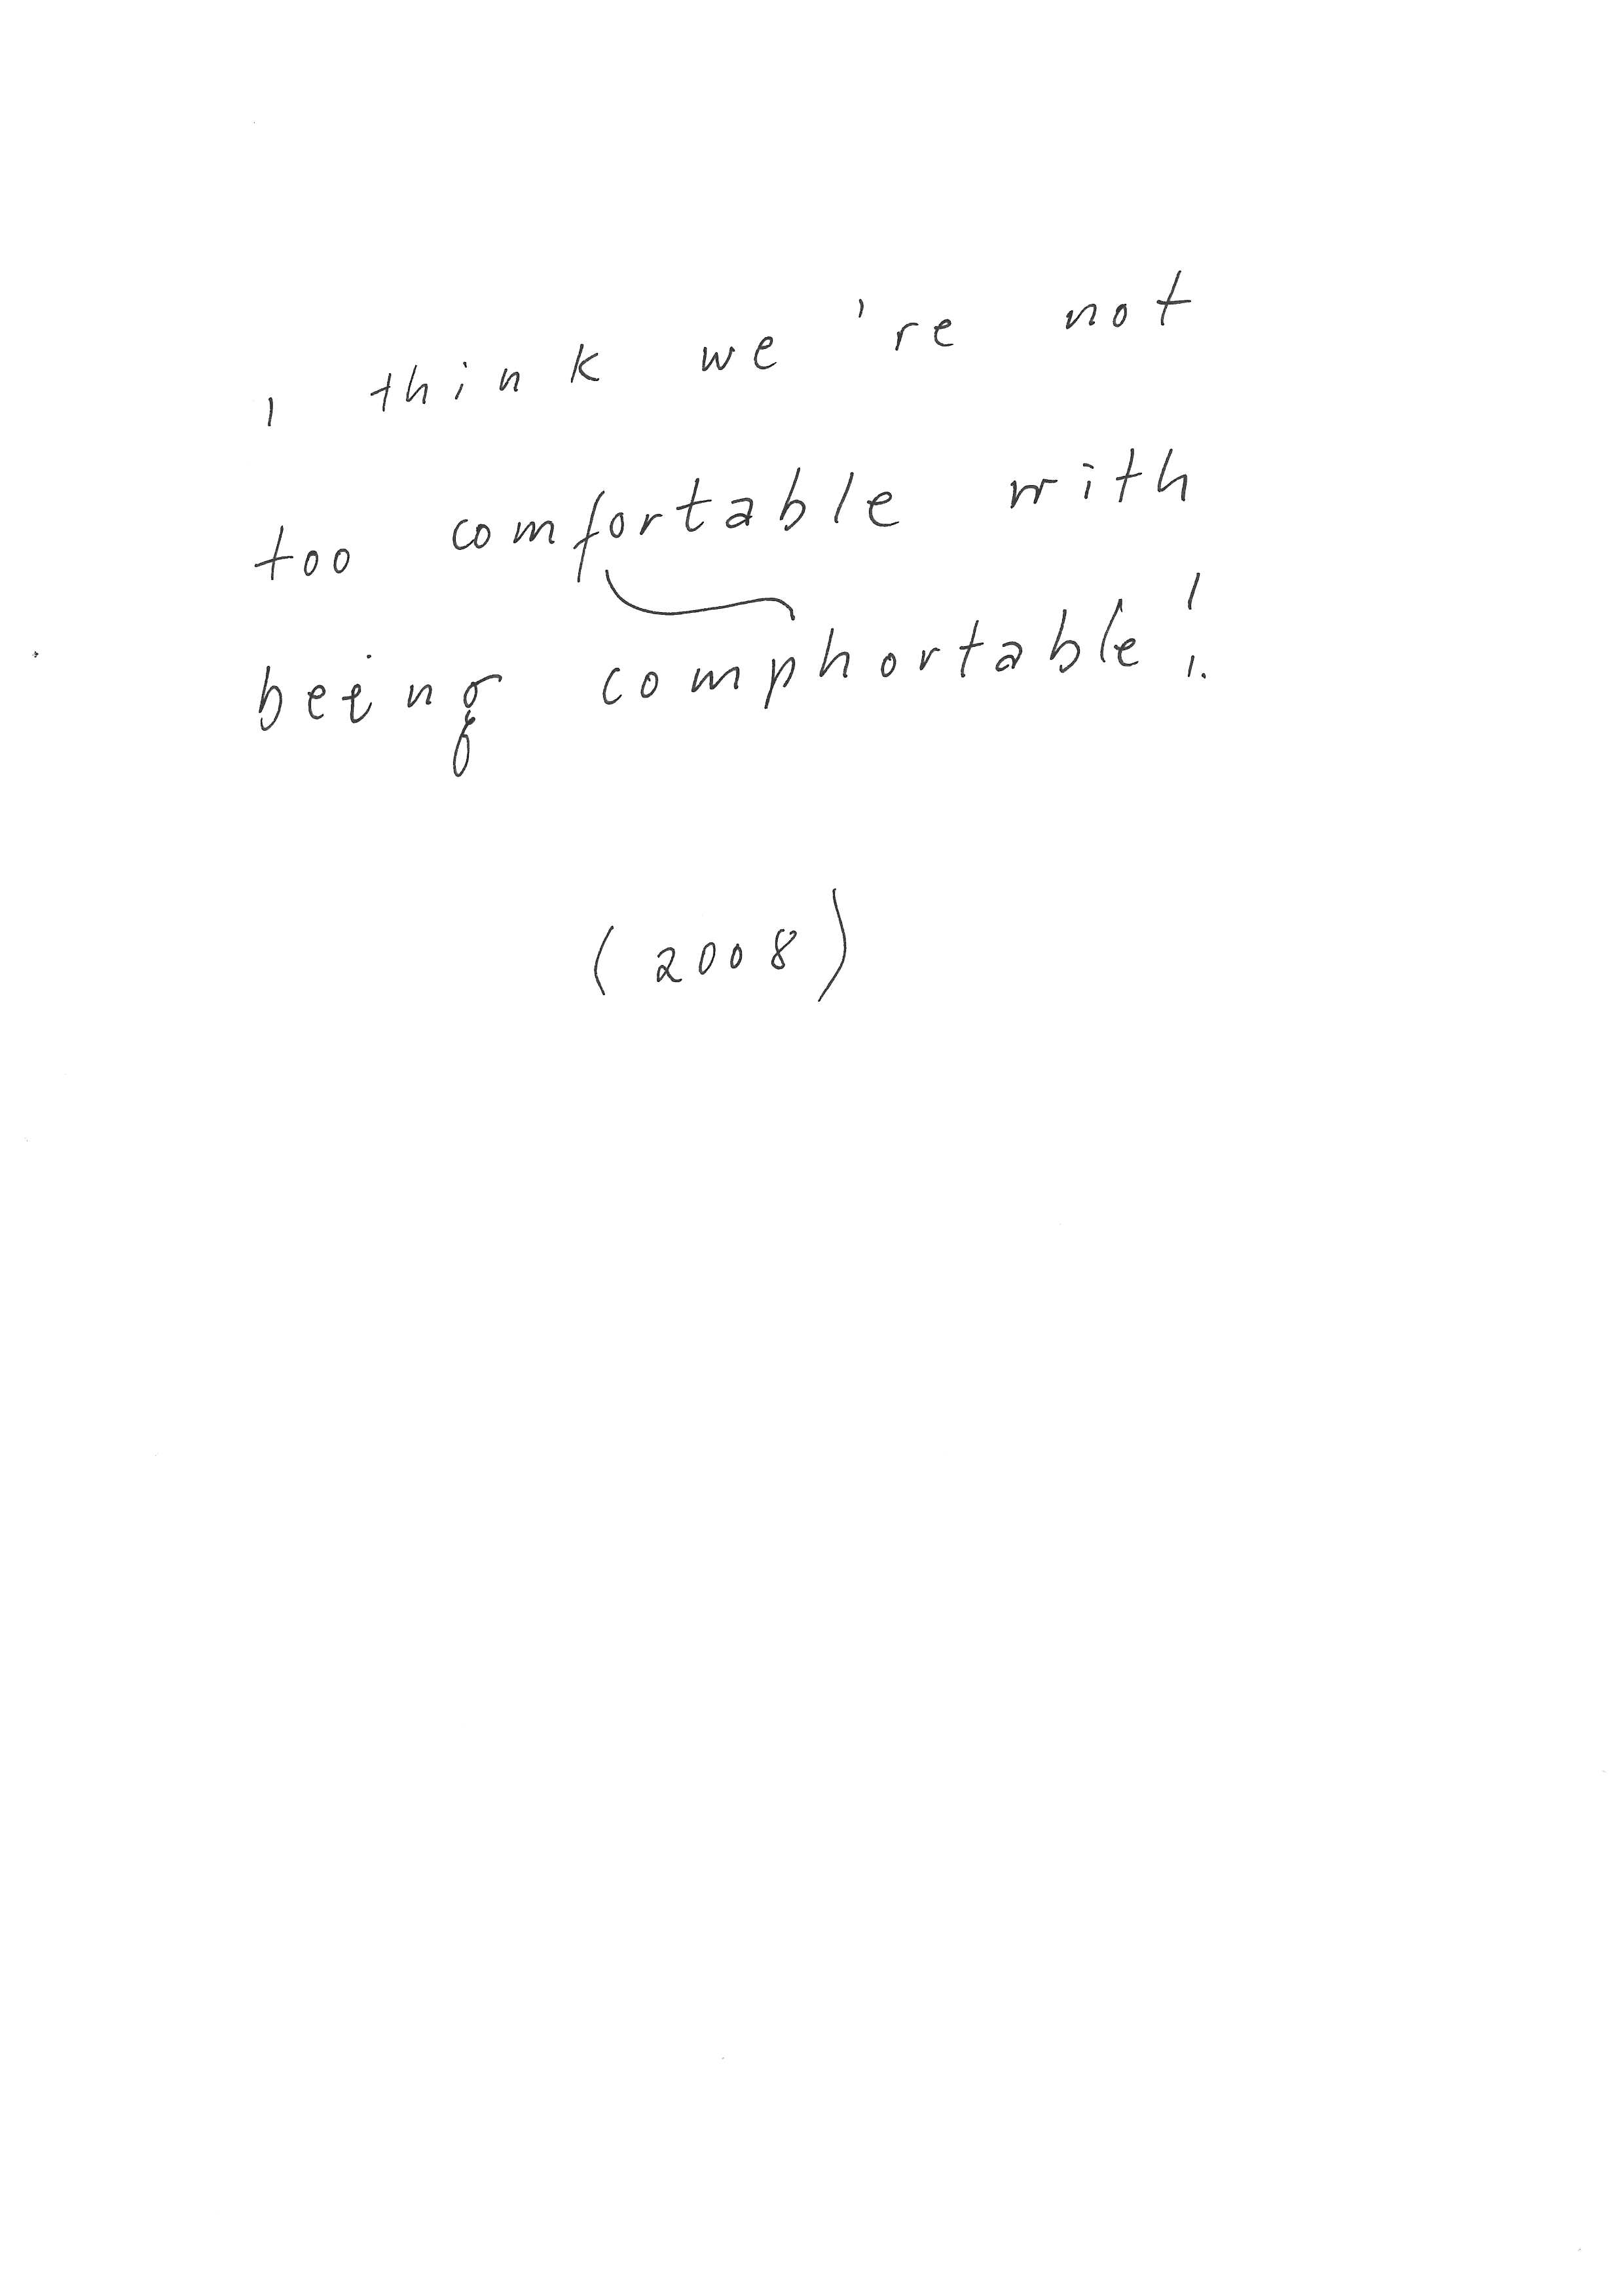 I think we're not
too comfortable with
being comphortable!
(2008)